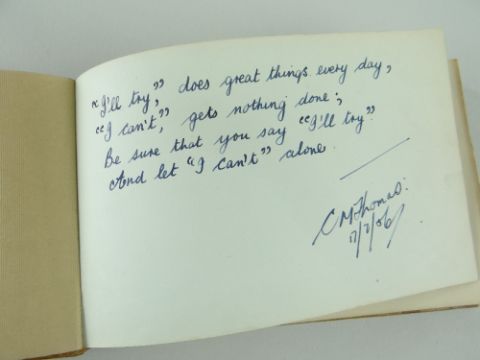 "I'll try," does great things every day,
"I can't," gets nothing done;
Be sure that you say "I'll try"
And let "I can't" alone.
C M Thomas.
17/7/06